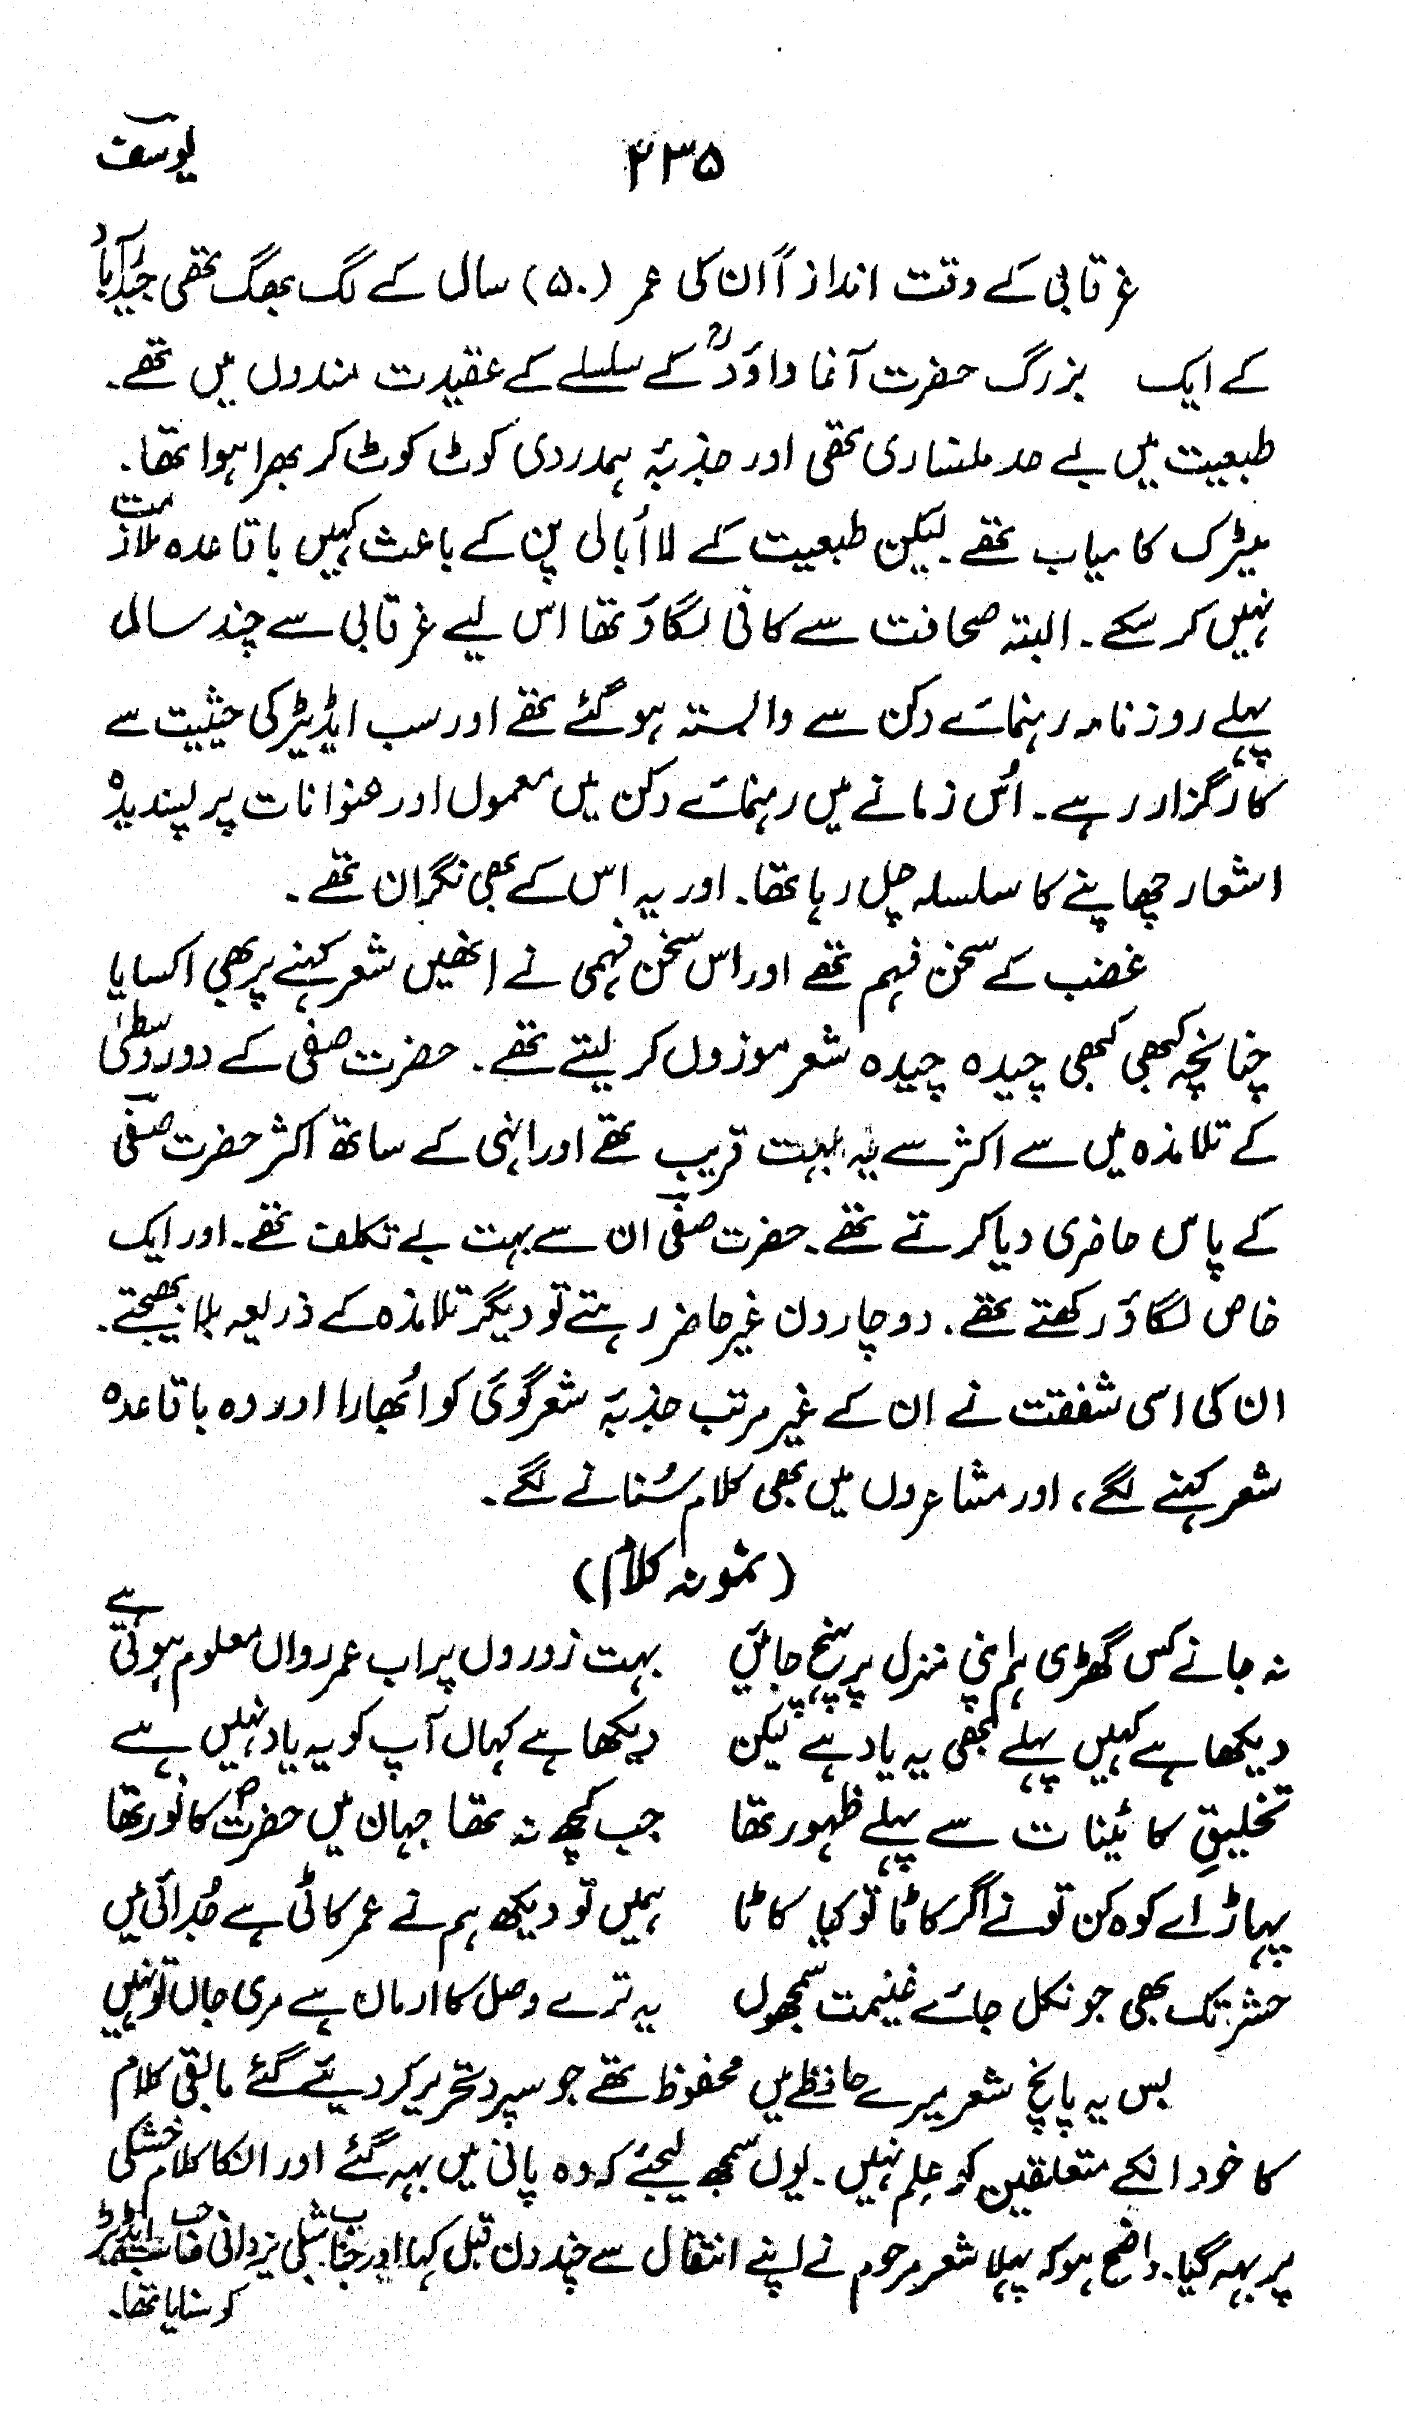 ۲۳۵
یوسف
غرقابی کے وقت اندازاً ان کی عمر (۵۰) سال کے لگ بھگ تھی حیدرآباد
کے ایک بزرگ حضرت آغا داؤدؒ کے سلسلے کے عقیدت مندوں میں تھے۔
طبعیت میں بے حد ملنساری تھی اور جذبۂ ہمدردی کوٹ کوٹ کر بھرا ہوا تھا۔
میٹرک کامیاب تھے۔ لیکن طبعیت کے لااُبالی پن کے باعث کہیں باقاعدہ ملازمت
نہیں کر سکے۔ البتہ صحافت سے کافی لگاؤ تھا اس لیے غرقابی سے چند سال
پہلے روزنامہ رہنمائے دکن سے وابستہ ہو گئے تھے اور سب ایڈیٹر کی حیثیت سے
کارگزار رہے۔ اُس زمانے میں رہنمائے دکن میں معمول اور عنوانات پر پسندیدہ
اشعار چھاپنے کا سلسلہ چل رہا تھا۔ اور یہ اس کے بھی نگران تھے۔
غضب کے سخن فہم تھے اور اس سخن فہمی نے انھیں شعر کہنے پر بھی اکسایا
چنانچہ کبھی کبھی چیدہ چیدہ شعر موزوں کر لیتے تھے۔ حضرت صفی کے دور وسطیٰ
کے تلامذہ میں سے اکثر سے یہ بہت قریب تھے اور انہی کے ساتھ اکثر حضرت صفیؔ
کے پاس حاضری دیا کرتے تھے۔ حضرت صفیؔ ان سے بہت بے تکلف تھے۔ اور ایک
خاص لگاؤ رکھتے تھے۔ دو چار دن غیر حاضر رہتے تو دیگر تلامذہ کے ذریعہ بلا بھیجتے۔
ان کی اسی شفقت نے ان کے غیر مرتب جذبۂ شعر گوئی کو اُبھارا اور وہ باقاعدہ
شعر کہنے لگے، اور مشاعروں میں بھی کلام سُنانے لگے۔
(نمونہ کلام)
نہ جانے کس گھڑی ہم اپنی منزل پر پہنچ جائیں بہت زوروں پر اب عمر رواں معلوم ہوتی ہے
دیکھا ہے کہیں پہلے کبھی یہ یاد ہے لیکن دیکھا ہے کہاں آپ کو یہ یاد نہیں ہے
تخلیقِ کائینات سے پہلے ظہور تھا جب کچھ نہ تھا جہان میں حضرتؐ کا نور تھا
پہاڑ اے کوہ کن تو نے اگر کاٹا تو کیا کاٹا ہمیں تو دیکھ ہم نے عمر کاٹی ہے جُدائی میں
حشر تک بھی جو نکل جائے غنیمت سمجھوں یہ ترے وصل کا ارمان ہے مری جاں تو نہیں
بس یہ پانچ شعر میرے حافظے میں محفوظ تھے جو سپرد تحریر کر دیئے گئے مابقی کلام
کا خود انکے متعلقین کو علم نہیں۔ یوں سمجھ لیجئے کہ وہ پانی میں بہہ گئے اور انکا کلام خشکی
پر بہہ گیا۔ واضح ہو کہ پہلا شعر مرحوم نے اپنے انتقال سے چند دن قبل کہا اور جناب شبلی یزدانی
کو سنایا تھا۔